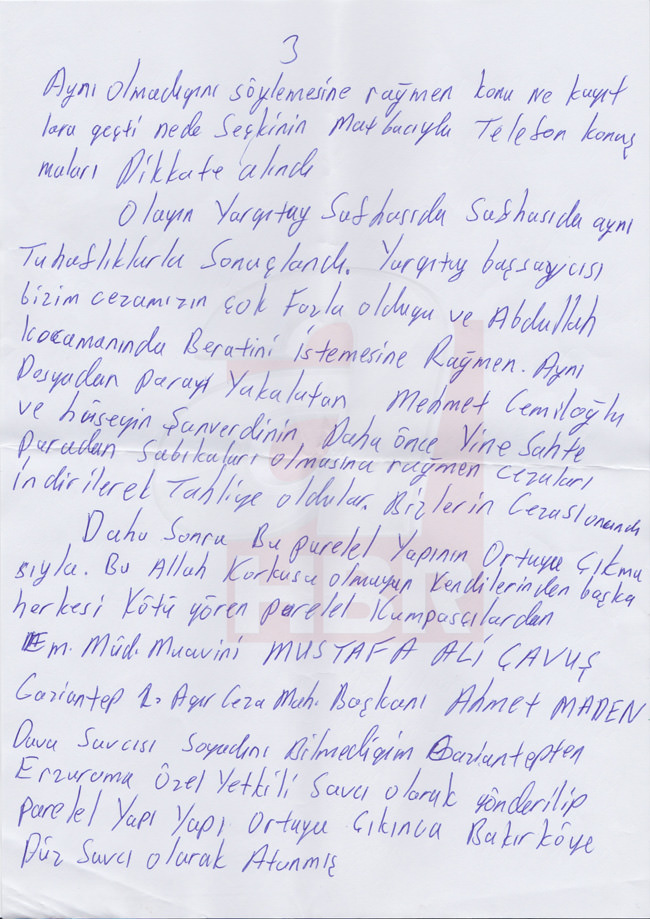 3
Aynı olmadıgını söylemesine rağmen konu ne kayıt
lara geçti nede Seçkinin Matbacıyla Telefon konuş
maları Dikkate alındı
Olayın Yargıtay Safhasıda Safhasıda aynı
Tuhaflıklarla Sonuçlandı. Yargıtay başsavcısı
bizim cezamızın çok Fazla olduğu ve Abdullah
kocamanında Beratini İstemesine Rağmen. Aynı
Dosyadan parayı Yakalatan Mehmet Cemiloğlu
ve hüseyin Şanverdinin Daha önce Yine Sahte
paradan Sabıkaları olmasına rağmen cezaları
indirilerek Tahliye oldular. Bizlerin Cezası onandı
Daha Sonra Bu parelel Yapının Ortaya Çıkma
sıyla. Bu Allah Korkusu olmayan Kendilerinden başka
herkesi Kötü gören parelel Kumpasçılardan
Em. Müd. Muavini MUSTAFA ALİ ÇAVUŞ
Gaziantep 2. Agır Ceza Mah. Başkanı Ahmet MADEN
Dava Savcısı Soyadını Bilmedigim Gaziantepten
Erzuruma Özel Yetkili Savcı olarak gönderilip
parelel Yapı Yapı Ortaya Çıkınca Bakırköye
Düz Savcı olarak Atanmış
HBR